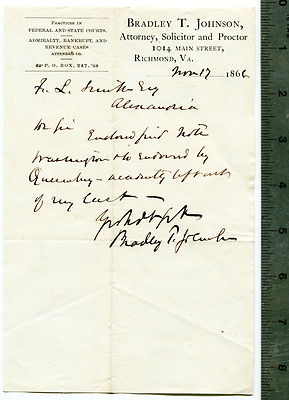 PRACTICES IN
FEDERAL AND STATE COURTS.
ADMIRALTY, BANKRUPT, AND
REVENUE CASES
ATTENDED TO.
P. O. BOX, 247.
BRADLEY T. JOHNSON,
Attorney, Solicitor and Proctor
1014 MAIN STREET,
RICHMOND, VA.
Nov 17 1866
F. L. Smith Esq
Alexandria
Dr Sir Enclosed find Note
Washington & endorsed by
of my last
Bradley T. Johnson
1
2
3
4
5
6
7
8